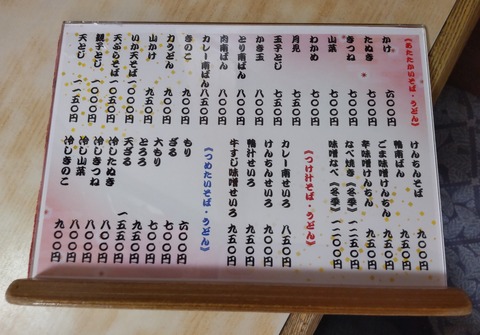 《あたたかいそば・うどん》
かけ 六〇〇円
たぬき 七〇〇円
きつね 七〇〇円
山菜 七〇〇円
わかめ 七〇〇円
月見 七五〇円
玉子とじ 七五〇円
かき玉 七五〇円
とり南ばん 八〇〇円
肉南ばん 八〇〇円
カレー南ばん 八五〇円
きのこ 九〇〇円
力うどん 九〇〇円
山かけ 九五〇円
いか天そば 一〇〇〇円
天ぷらそば 一〇五〇円
親子とじ 一〇〇〇円
天とじ 一一五〇円
けんちんそば 九〇〇円
鴨南ばん 九五〇円
ごま味噌けんちん 九五〇円
辛味噌けんちん 九五〇円
なべ焼き《冬季》 一二〇〇円
味噌なべ《冬季》 一二〇〇円
《つけ汁そば・うどん》
カレー南せいろ 八五〇円
けんちんせいろ 九五〇円
鴨汁せいろ 九五〇円
牛すじ味噌せいろ 九五〇円
《つめたいそば・うどん》
もり 六〇〇円
ざる 七〇〇円
大もり 七〇〇円
とろろ 九五〇円
天ざる
冷したぬき 八〇〇円
冷しきつね 八〇〇円
冷し山菜 八〇〇円
冷しきのこ 九〇〇円